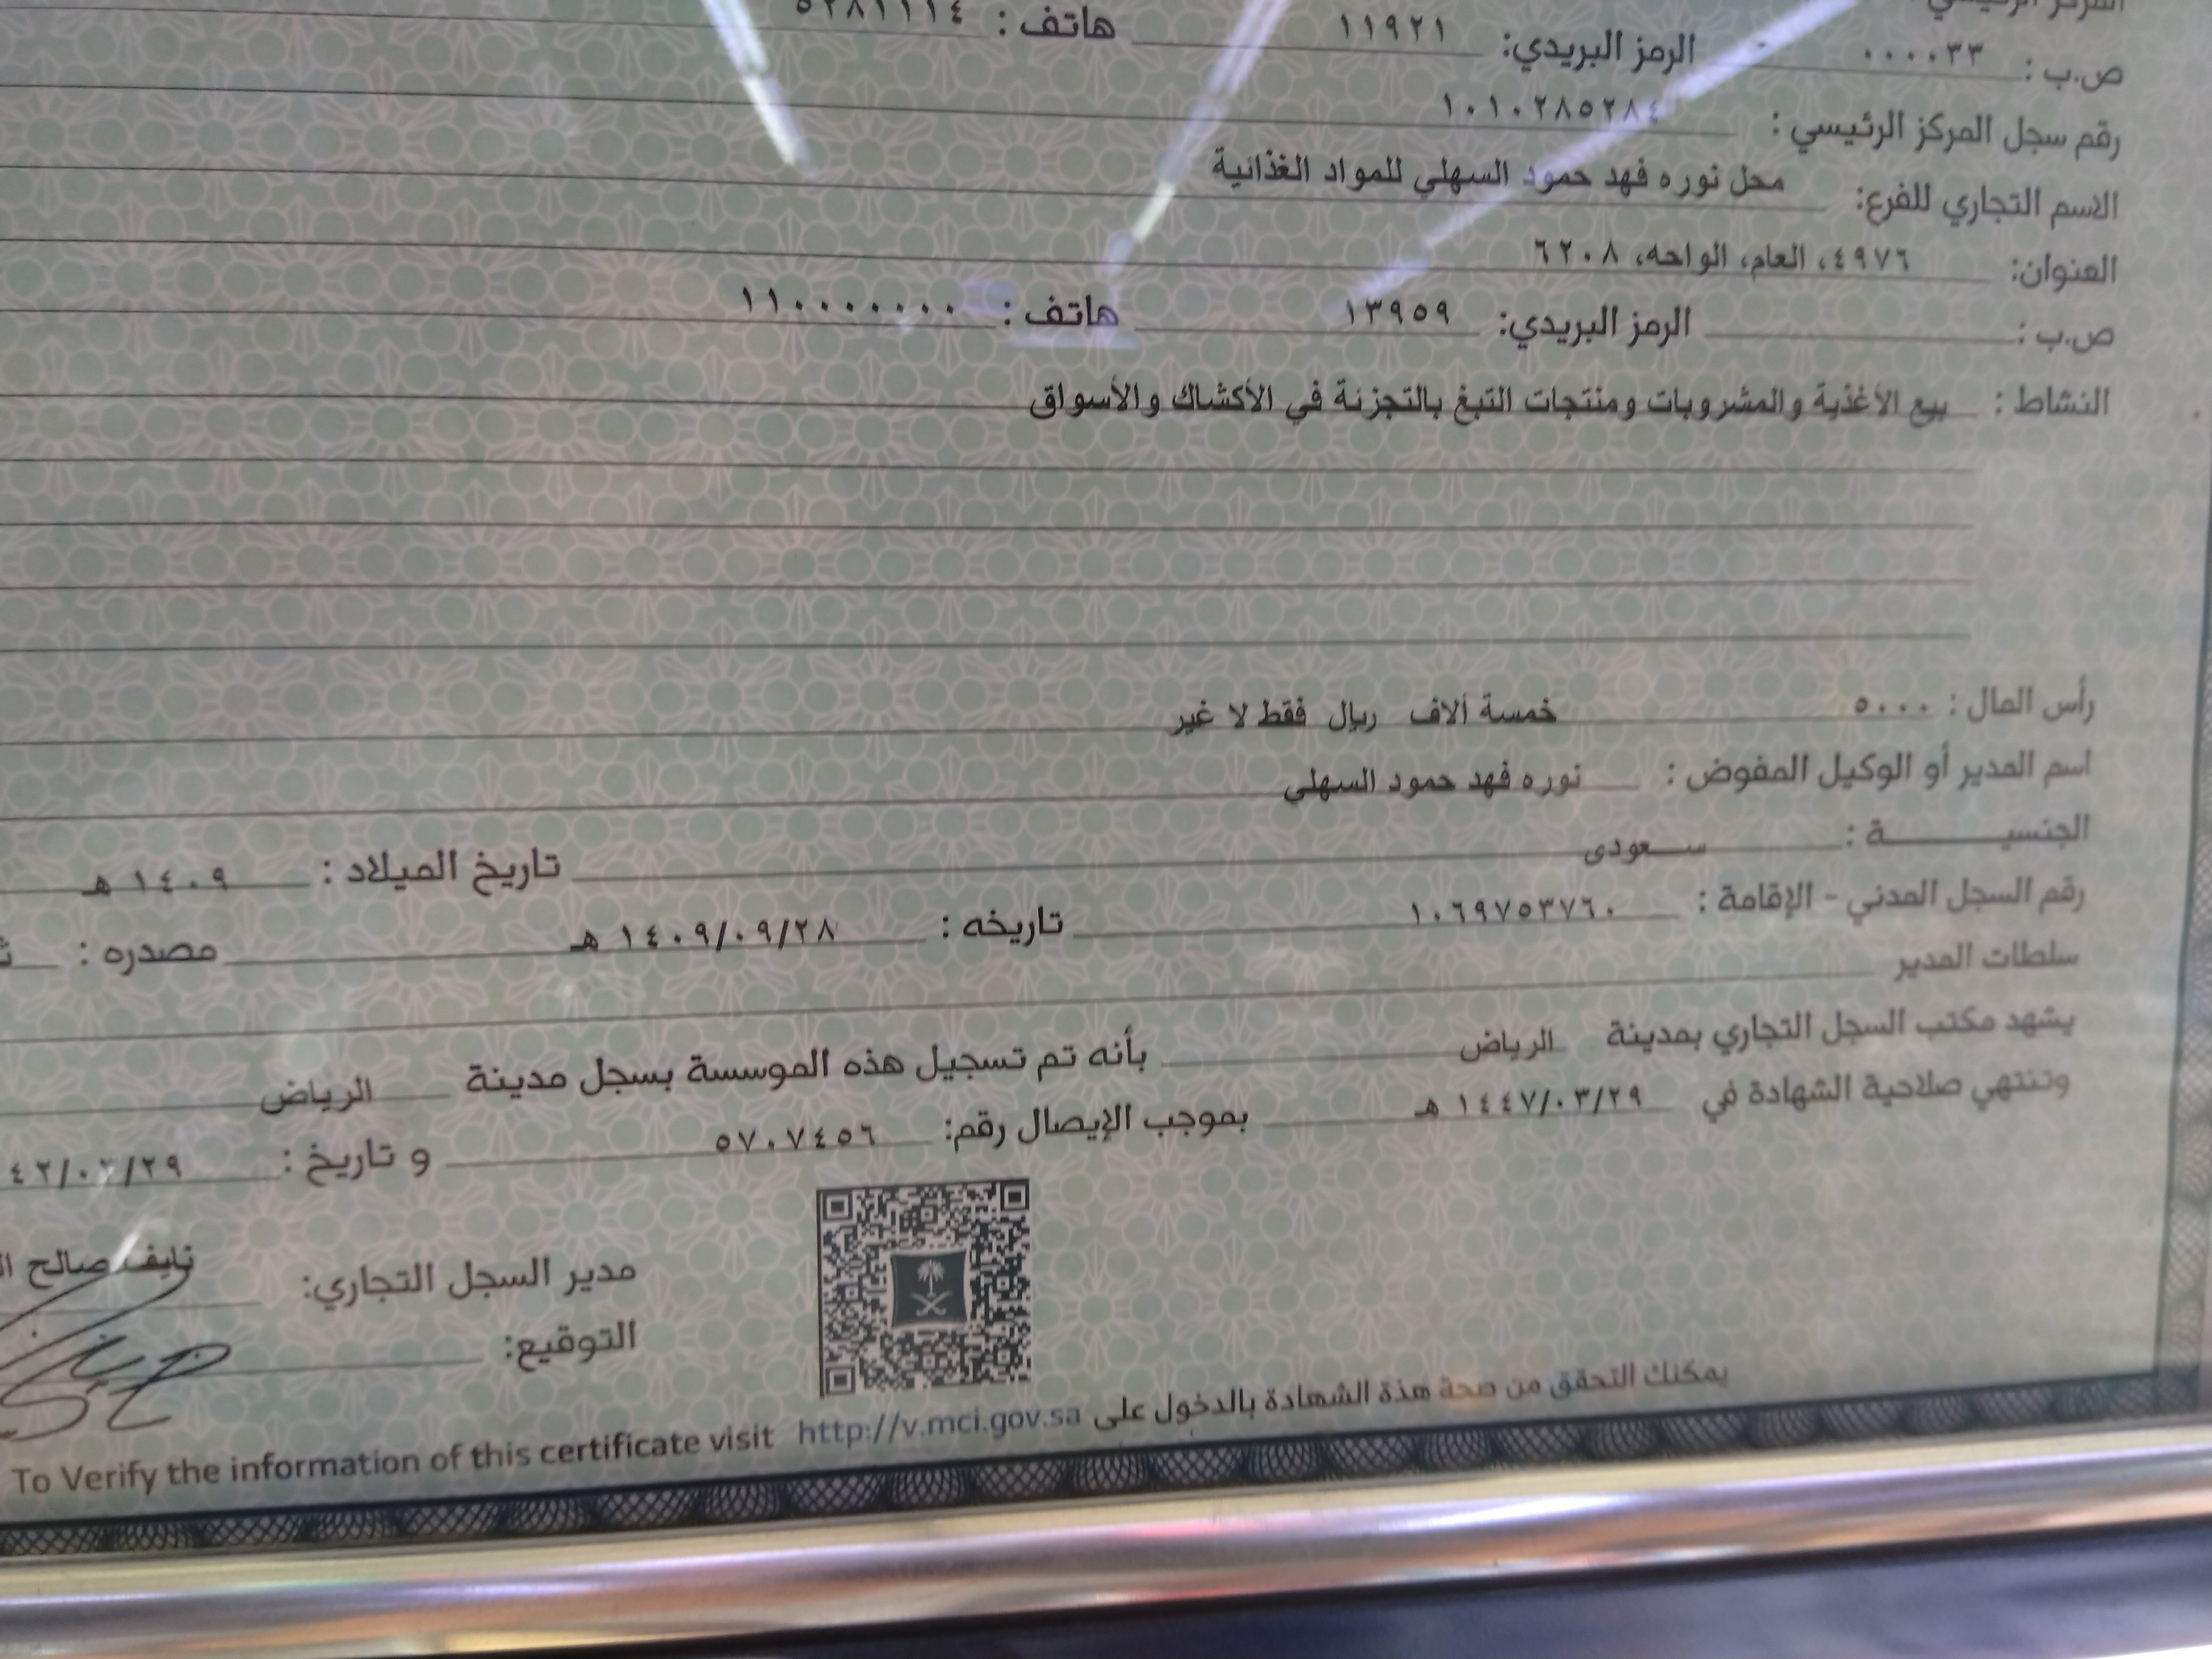 ص.ب : ٠٠٠٠٣٣ الرمز البريدي: ١١٩٢١ هاتف :
رقم سجل المركز الرئيسي : ١٠١٠٢٨٥٢٨٤
الاسم التجاري للفرع: محل نوره فهد حمود السهلي للمواد الغذائية
العنوان: ٤٩٧٦، العام، الواحه، ٦٢٠٨
ص.ب : الرمز البريدي: ١٣٩٥٩ هاتف : ١١٠٠٠٠٠٠٠٠
النشاط : بيع الأغذية والمشروبات ومنتجات التبغ بالتجزئة في الأكشاك والأسواق
رأس المال : ٥٠٠٠ خمسة ألاف ريال فقط لا غير
اسم المدير أو الوكيل المفوض : نوره فهد حمود السهلي
الجنسيـــــــة : سـعودى تاريخ الميلاد : ١٤٠٩ هـ
رقم السجل المدني - الإقامة : ١٠٦٩٧٥٣٧٦٠ تاريخه : ١٤٠٩/٠٩/٢٨ هـ مصدره :
سلطات المدير
يشهد مكتب السجل التجاري بمدينة الرياض بأنه تم تسجيل هذه الموسسة بسجل مدينة الرياض
وتنتهي صلاحية الشهادة في ١٤٤٧/٠٣/٢٩ هـ بموجب الإيصال رقم: ٥٧٠٧٤٥٦ و تاريخ :
مدير السجل التجاري: نايف صالح
التوقيع:
يمكنك التحقق من صحة هذة الشهادة بالدخول على http://v.mci.gov.sa To Verify the information of this certificate visit